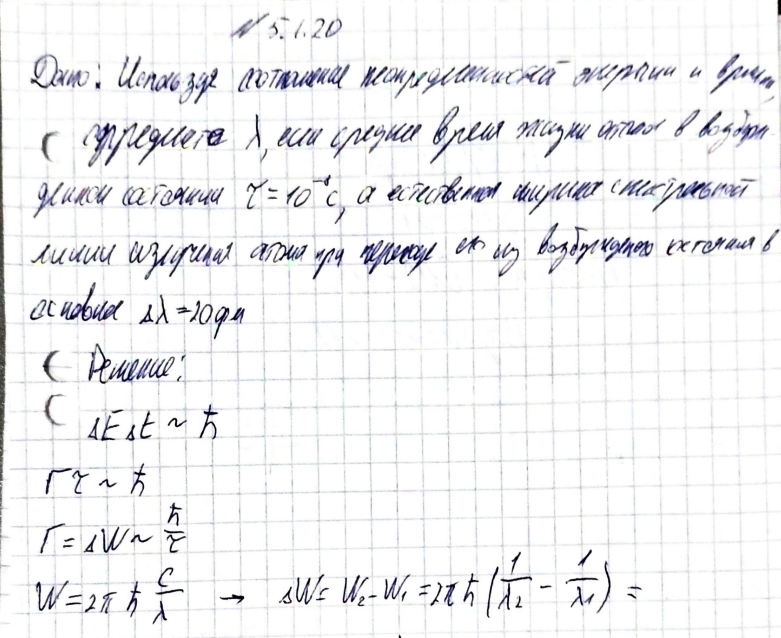 № 5.1.20
Дано: Используя соотношение неопределенностей энергии и времени,
определите λ, если среднее время жизни атома в возбуж-
денном состоянии τ = 10⁻⁸ с, а естественная ширина спектральной
линии излучения атома при переходе его из возбужденного состояния в
основное Δλ = 20 фм
Решение:
ΔEΔt ~ ħ
Γτ ~ ħ
Γ = ΔW ~ ħ/τ
W = 2πħ c/λ → ΔW = W₂ - W₁ = 2πħ (1/λ₂ - 1/λ₁) =